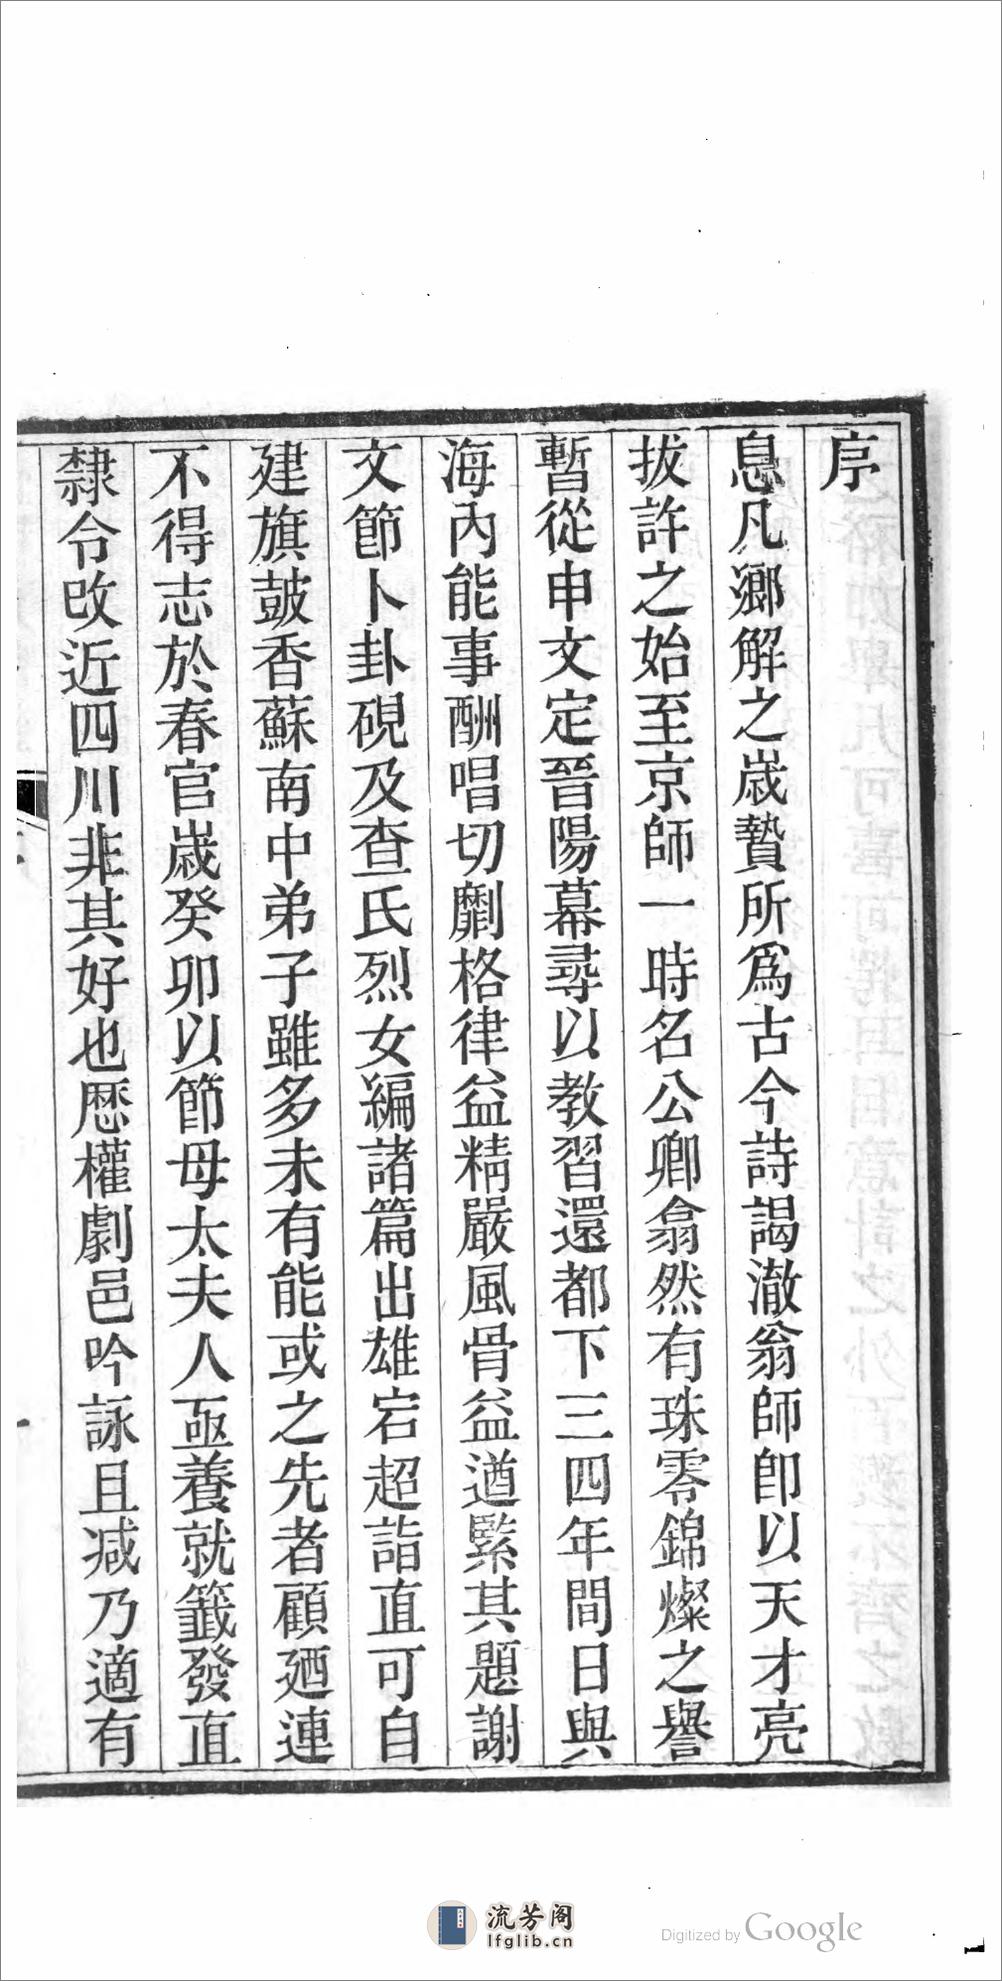 序
息凡鄉解之歲贄所爲古今詩謁澈翁師卽以天才亮
拔許之始至京師一時名公卿翕然有珠零錦燦之譽
暫從申文定晉陽幕尋以教習還都下三四年間日與
海內能事酬唱切劘格律益精嚴風骨益遒緊其題謝
文節卜卦硯及查氏烈女編諸篇出雄宕超詣直可自
建旗鼓香蘇南中弟子雖多未有能或之先者顧廼連
不得志於春官歲癸卯以節母太夫人亟養就籤發直
隸令改近四川非其好也歷權劇邑吟詠且減乃適有
流芳阁
lfglib.cn
Digitized by Google